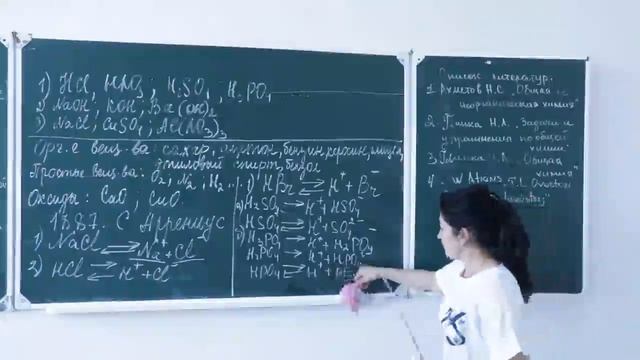 1) HCl, HNO3; H2SO4, H3PO4
2) NaOH, KOH, Ba(OH)2
3) NaCl, CuSO4, Al(NO3)3
Орг-е вещ-ва: сахар, ацетон, бензин, керосин, глицерин,
этиловый спирт, бензол
Простые вещ-ва: O2, N2, H2...
Оксиды: CaO, CuO.
1887. С Аррениус
1) NaCl ⇌ Na+ + Cl-
2) HCl ⇌ H+ + Cl-
1) HBr ⇌ H+ + Br-
2) H2SO4 ⇌ H+ + HSO4-
HSO4- ⇌ H+ + SO4 2-
3) H3PO4 ⇌ H+ + H2PO4-
H2PO4 ⇌ H+ + HPO4
HPO4 ⇌ H+ +
Список литератур:
1 Ахметов Н.С. "Общая и
неорганическая химия"
2. Глинка Н.Л. Задачи и
упражнения по общей
химии
3. Глинка Н.Л. Общая
химия"
4. W Atkins